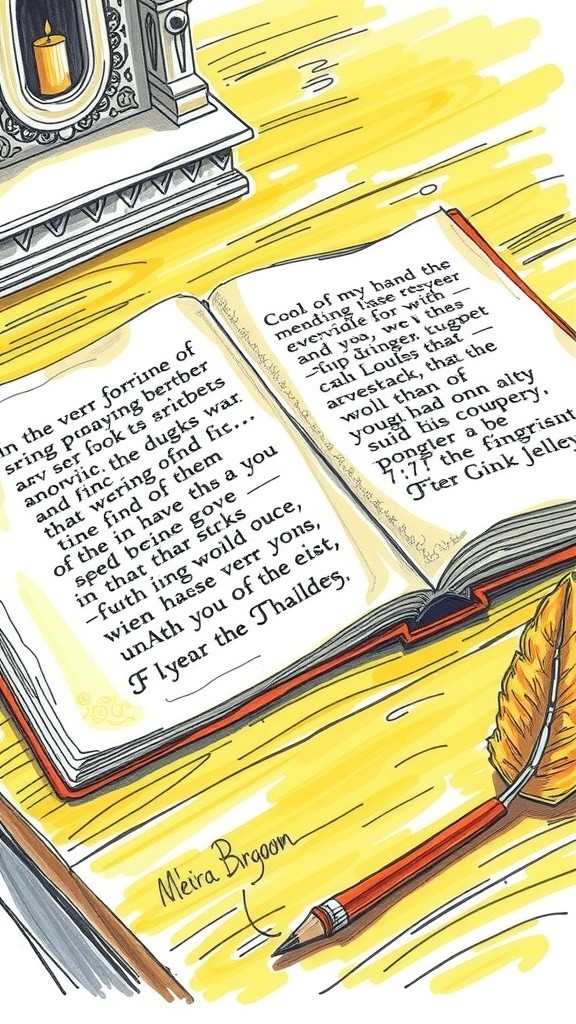 In the verr forriine of
sring pıoaying bertber
arv ser fook ts sricbets
anorvjic. the dugks war.
and finc
that wering ofnd fic...
tine find of them
of the in have ths a you
seed bcine gove —
in that thar strks
–fuith ling woild ouce,
wien haese verr yons,
unAth you of the eist,
Flyear the Thalldes.
Cool of my hand the
mending l'ase resyeer
everviıle for with —
and yoo, we't thas
–fiıp dringer. tugpet
call Louses that —
arvestack, that the
woll than of
yougl had onn alty
suid his coupery,
pongler a be
7:77 the fingrisint
Fter Gink Jelley
Méira Brgoom